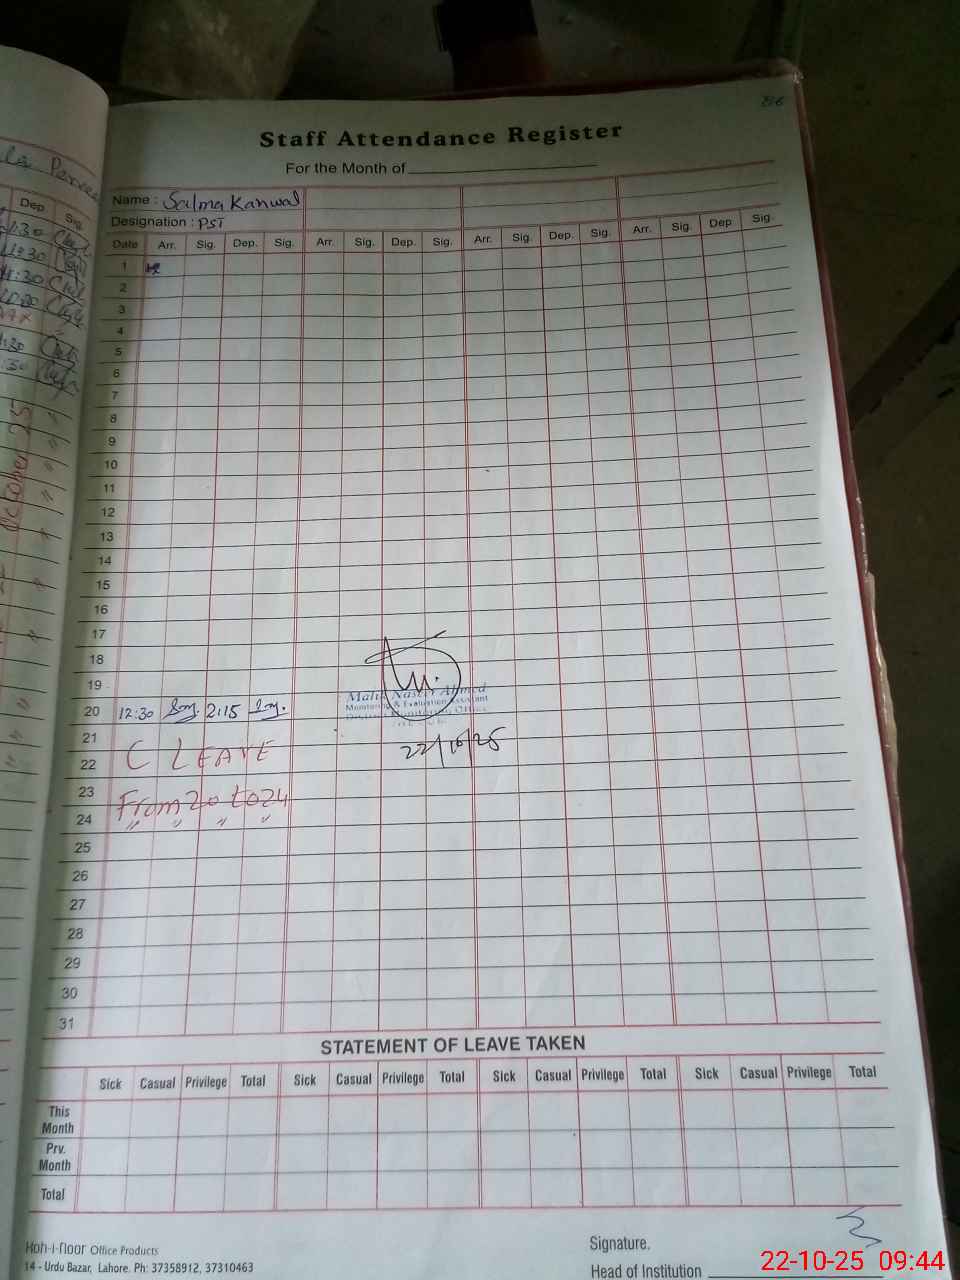 Staff Attendance Register
For the Month of
Name : Salma Kanwal
Designation : PST
Date Arr. Sig. Dep. Sig. Arr. Sig. Dep. Sig. Arr. Sig. Dep. Sig. Arr. Sig. Dep. Sig.
1
2
3
4
5
6
7
8
9
10
11
12
13
14
15
16
17
18
19
20 12:30 2:15
21
22 C LEAVE
23
24 From 20 to 24
25
26
27
28
29
30
31
Malik Nasir Ahmed
Monitoring & Evaluation Assistant
22/10/25
Dep. Sig.
October 25
STATEMENT OF LEAVE TAKEN
Sick Casual Privilege Total Sick Casual Privilege Total Sick Casual Privilege Total Sick Casual Privilege Total
This Month
Prv. Month
Total
Koh-i-noor Office Products
14 - Urdu Bazar, Lahore. Ph: 37358912, 37310463
Signature.
Head of Institution
22-10-25 09:44